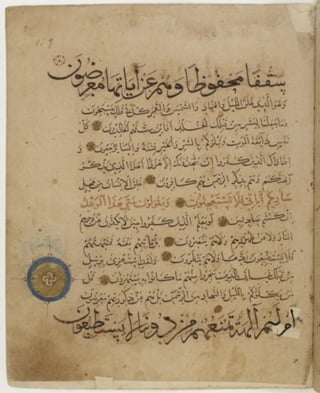 سقفا محفوظا وهم عن اياتها معرضون
وهو الذي خلق الليل والنهار والشمس والقمر كل في فلك يسبحون
وما جعلنا لبشر من قبلك الخلد افاين مت فهم الخالدون كل
نفس ذائقة الموت ونبلوكم بالشر والخير فتنة والينا ترجعون و
اذا راك الذين كفروا ان يتخذونك الا هزوا اهذا الذي يذكر
الهتكم وهم بذكر الرحمن هم كافرون خلق الانسان من عجل
ساريكم اياتي فلا تستعجلون ويقولون متى هذا الوعد
ان كنتم صادقين لو يعلم الذين كفروا حين لا يكفون عن وجوههم
النار ولا عن ظهورهم ولا هم ينصرون بل تاتيهم بغتة فتبهتهم
فلا يستطيعون ردها ولا هم ينظرون ولقد استهزئ برسل
من قبلك فحاق بالذين سخروا منهم ما كانوا به يستهزئون قل
من يكلؤكم بالليل والنهار من الرحمن بل هم عن ذكر ربهم معرضون
ام لهم الهة تمنعهم من دوننا لا يستطيعون